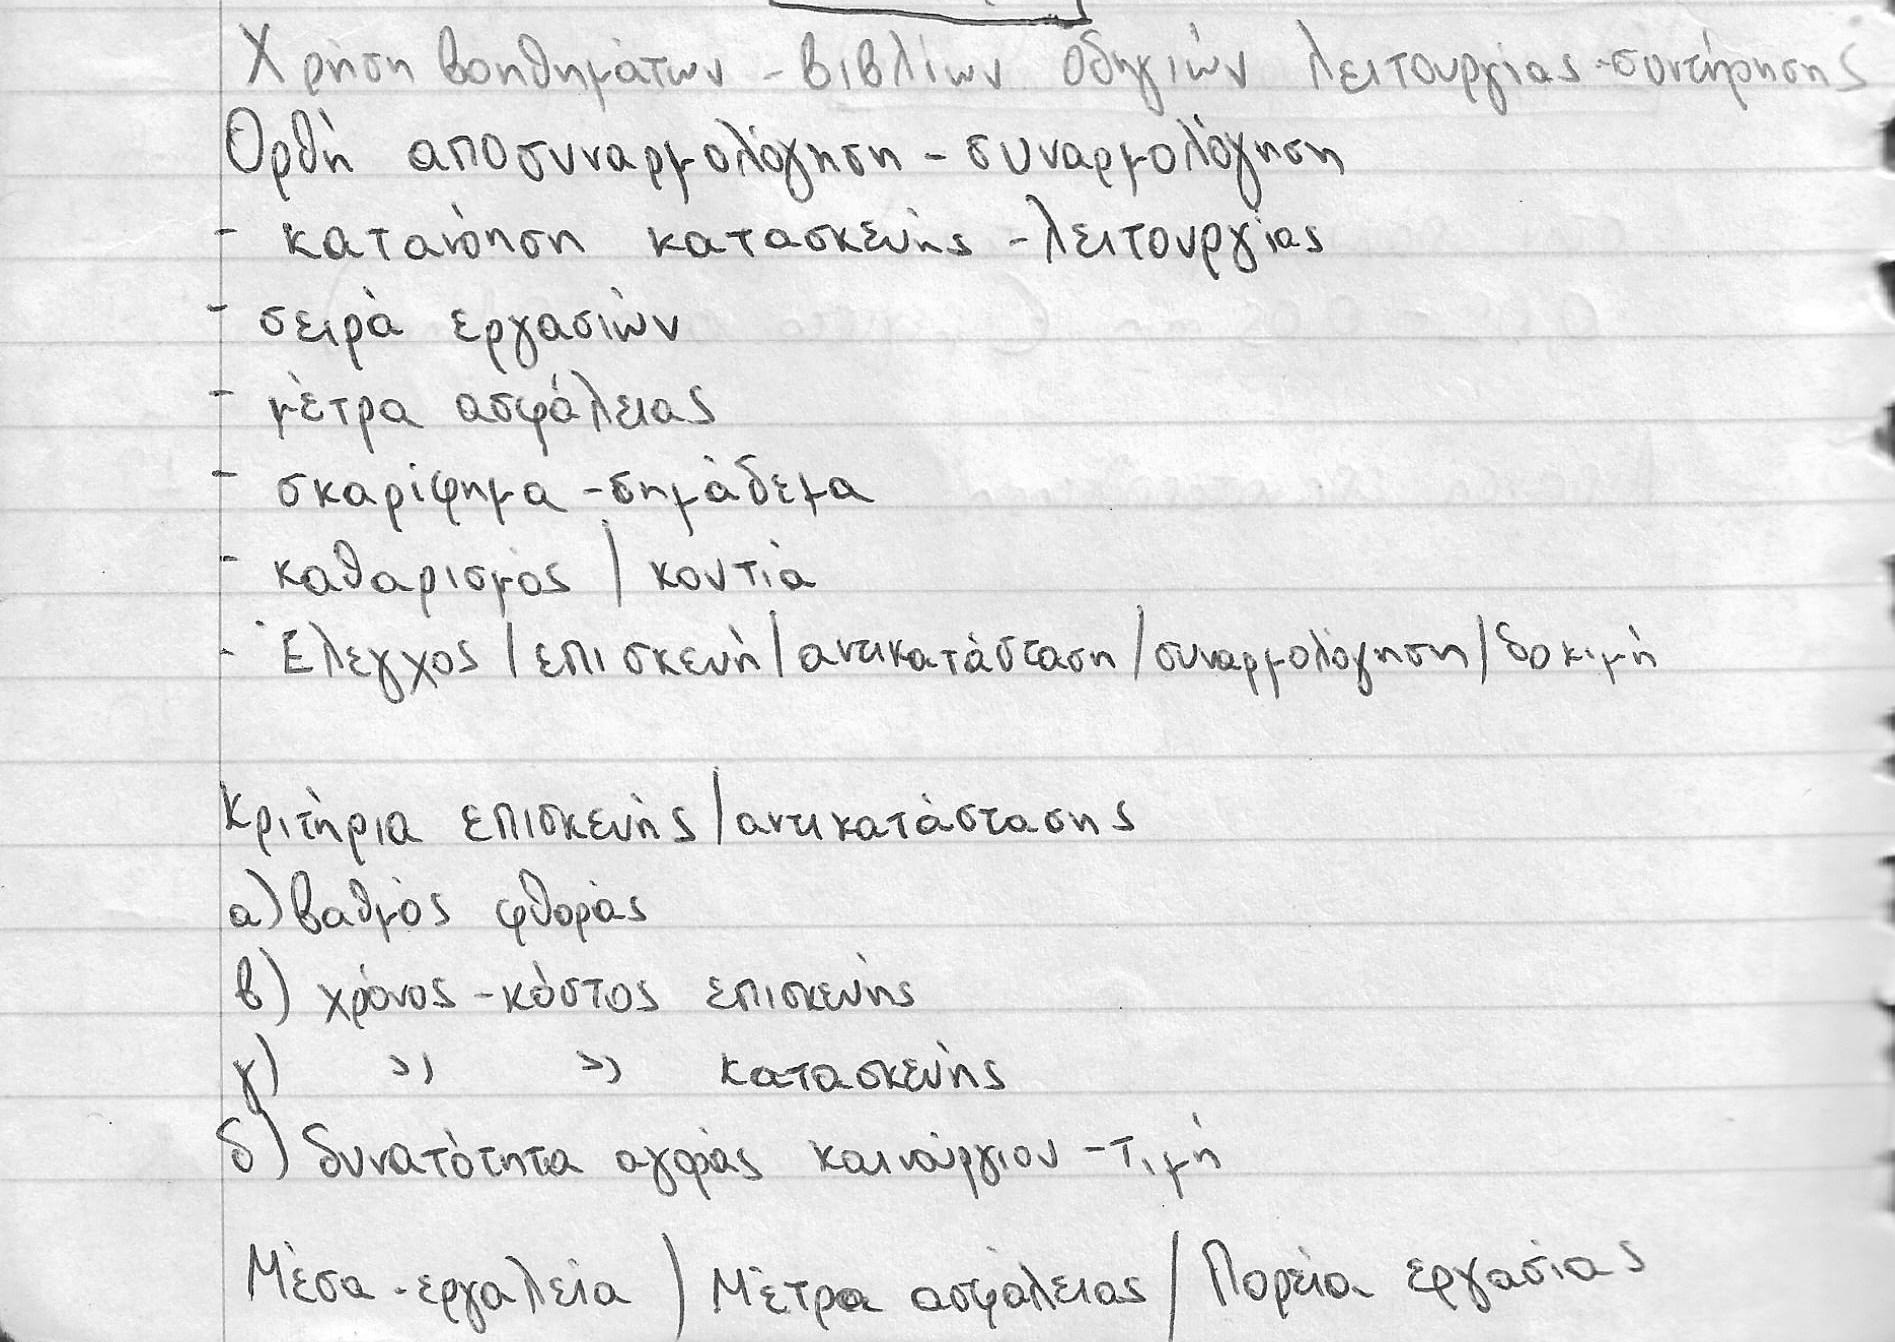 Χρήση βοηθημάτων - βιβλίων οδηγιών λειτουργίας - συντήρησης
Ορθή αποσυναρμολόγηση - συναρμολόγηση
- κατανόηση κατασκευής - λειτουργίας
- σειρά εργασιών
- μέτρα ασφάλειας
- σκαρίφημα - σημάδεμα
- καθαρισμός / κουτιά
- Έλεγχος / επισκευή / αντικατάσταση / συναρμολόγηση / δοκιμή
Κριτήρια επισκευής / αντικατάστασης
α) βαθμός φθοράς
β) χρόνος - κόστος επισκευής
γ) >> >> κατασκευής
δ) δυνατότητα αγοράς καινούργιου - τιμή
Μέσα - εργαλεία / Μέτρα ασφάλειας / Πορεία εργασίας